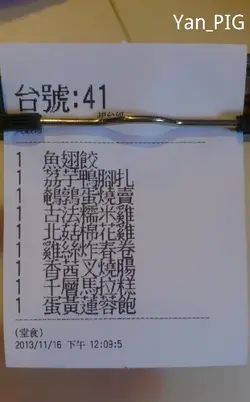 Yan_PIG
台號:41
1 魚翅餃
1 荔芋鴨腳扎
1 鵪鶉蛋燒賣
1 古法糯米雞
1 北菇棉花雞
1 雞絲炸春卷
1 香茜叉燒腸
1 千層馬拉糕
1 蛋黃蓮蓉飽
(堂食)
2013/11/16 下午 12:09:5